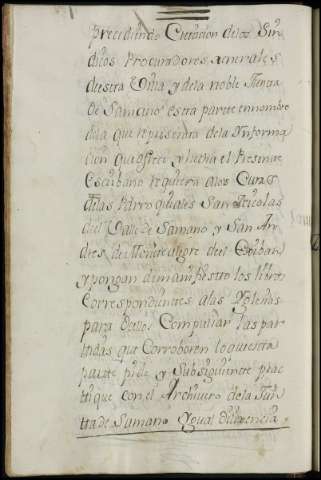 precediendo Citacion delos Sin
dicos Procuradores xenerales
deesta Villa y dela noble tierra
de San esta parte en nombre
dela que representa dela Informa
cion que ofrece y hecha el Presente
Escribano requiera alos Curas
delas Parroquiales San Nicolas
del Valle de Samano y San An
dres de Montealegre del
y pongan demanifiesto los libros
correspondientes alas Yglesias
para Compulsar las par
tidas que corroboren lo que esta
parte pide y Subsiguiente prac
tique con el Archivero dela Jun
ta de Samano Ygual dilixencia